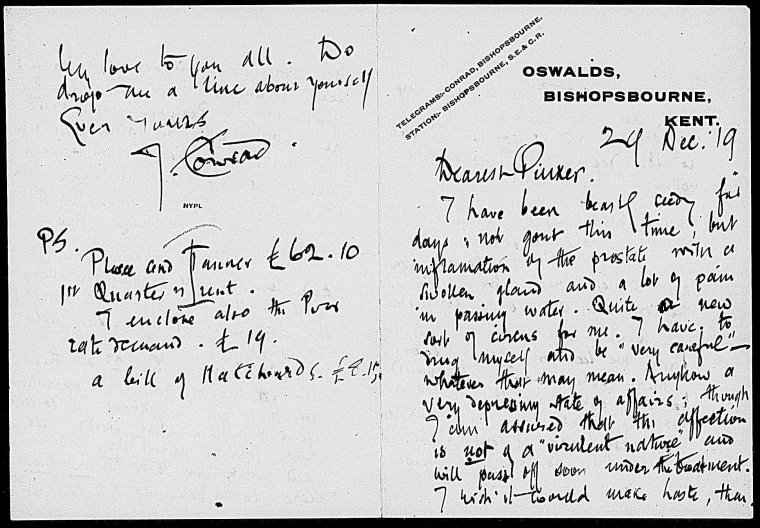 TELEGRAMS:- CONRAD, BISHOPSBOURNE.
STATION:- BISHOPSBOURNE, S.E. & C.R.
OSWALDS,
BISHOPSBOURNE,
KENT.
29 Dec. '19
Dearest Pinker.
I have been beastly seedy for
days, not gout this time, but
inflamation of the prostate with a
swollen gland and a lot of pain
in passing water. Quite a new
sort of circus for me. I have to
drug myself and be "very careful" –
whatever that may mean. Anyhow a
very depressing state of affairs; though
I am assured that this affection
is not of a "virulent nature" and
will pass off soon under the treatment.
I wish it would make haste, than
My love to you all. Do
drop me a line about yourself
Ever Yours
J. Conrad
NYPL
PS.
Please send Tanner £62.10
1st Quarter's rent.
I enclose also the Poor
rate demand. £19.
a bill of Hatchards.